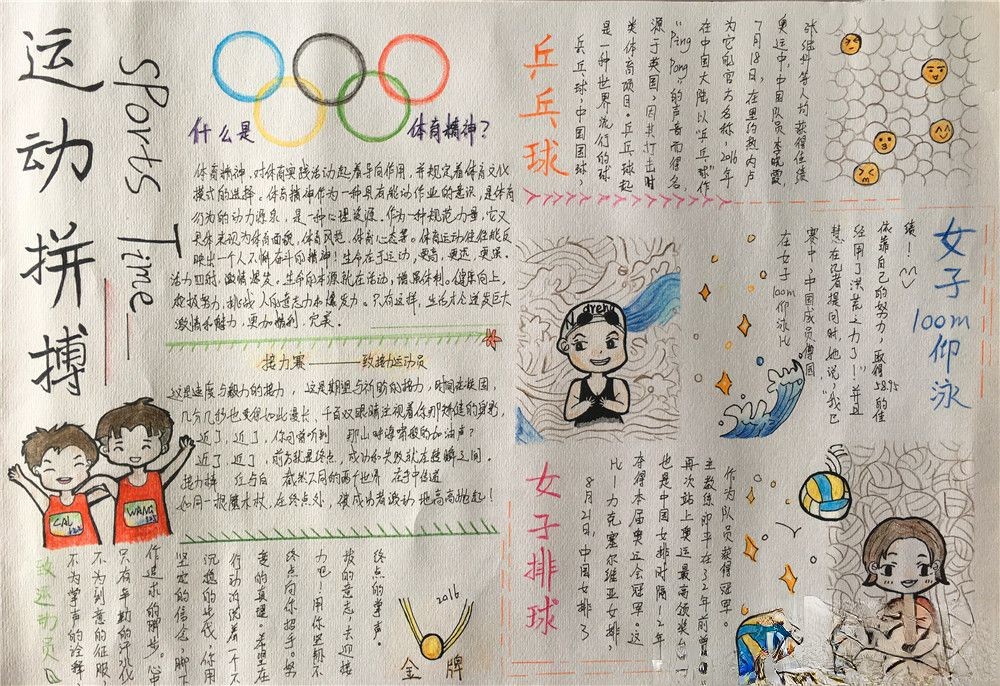 运动拼搏
SPorts Time
什么是体育精神？
体育精神，对体育实践活动起着导向作用，并规定着体育文化
模式的选择。体育精神作为一种具有能动作业的意识，是体育
行为的动力源泉，是一种心理资源。作为一种规范力量，它又
具体表现为体育面貌，体育风范，体育心态等。体育运动往往能反
映出一个人不懈奋斗的精神！生命在于运动，更高，更远，更强。
活力四射，激情爆发。生命的本源就在活动，增强体制。健康向上，
顽强努力，挑战人的意志力和爆发力。只有这样，生活才会迸发巨大
激情和魅力，更加胜利，完美。
接力赛——致接力运动员
这是速度与毅力的接力，这是期望与祈盼的接力，时间在校园，
几分几秒也变得如此漫长、千百双眼睛注视着你那矫健的身影，
近了，近了，你可曾听到 那山呼海啸般的加油声？
近了 近了，前方就是终点，成功和失败就在转瞬之间。
接力棒 红与白 截然不同的两个世界 在手中传递
如同一根魔术杖，在终点处，被成功者激动地高高抛起！
CAL
WANG
致运动员
不为掌声的诠释，
不为刻意的征服，
只有辛勤的汗水化
作追求的脚步。心中
坚定的信念，脚下
沉稳的步伐，你用
行动诉说着一个不
变的真理。希望在
终点向你招手。努
力吧！用你坚韧不
拔的意志，去迎接
终点的掌声。
2016
金牌
乒乓球
乒乓球，中国国球，
是一种世界流行的球
类体育项目。乒乓球起
源于英国，因其打击时
"Ping Pong"的声音而得名。
在中国大陆以"乒乓球"作
为它的官方名称，2016年
7月18日，在里约热内卢
奥运中，中国队员李晓霞，
张继科等人均获得佳绩
女子100m仰泳
在女子100m仰泳比
赛中，中国成员傅园
慧在记者提问时，她说，"我已
经用了洪荒之力了！"并且
依靠自己的努力，取得58.95的佳
绩！
女子排球
8月21日，中国女排3
比1力克塞尔维亚女排，
夺得本届奥运会冠军。这
也是中国女排时隔12年
再次站上奥运最高领奖台。
主教练郎平在32年前曾
作为队员获得冠军。